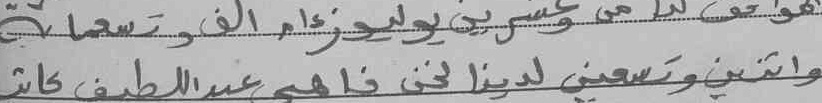 الموافق لخامس وعشرين يوليوز عام الف وتسعمائة
واثنين وتسعين لدينا نحن فاهي عبد اللطيف كاتب